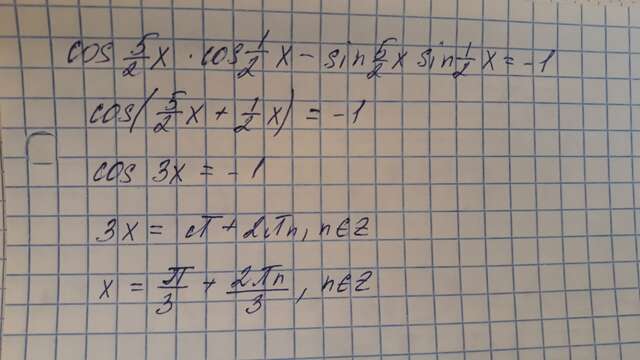 cos 5/2 x · cos 1/2 x − sin 5/2 x sin 1/2 x = −1
cos(5/2 x + 1/2 x) = −1
cos 3x = −1
3x = π + 2πn, n∈Z
x = π/3 + 2πn/3, n∈Z